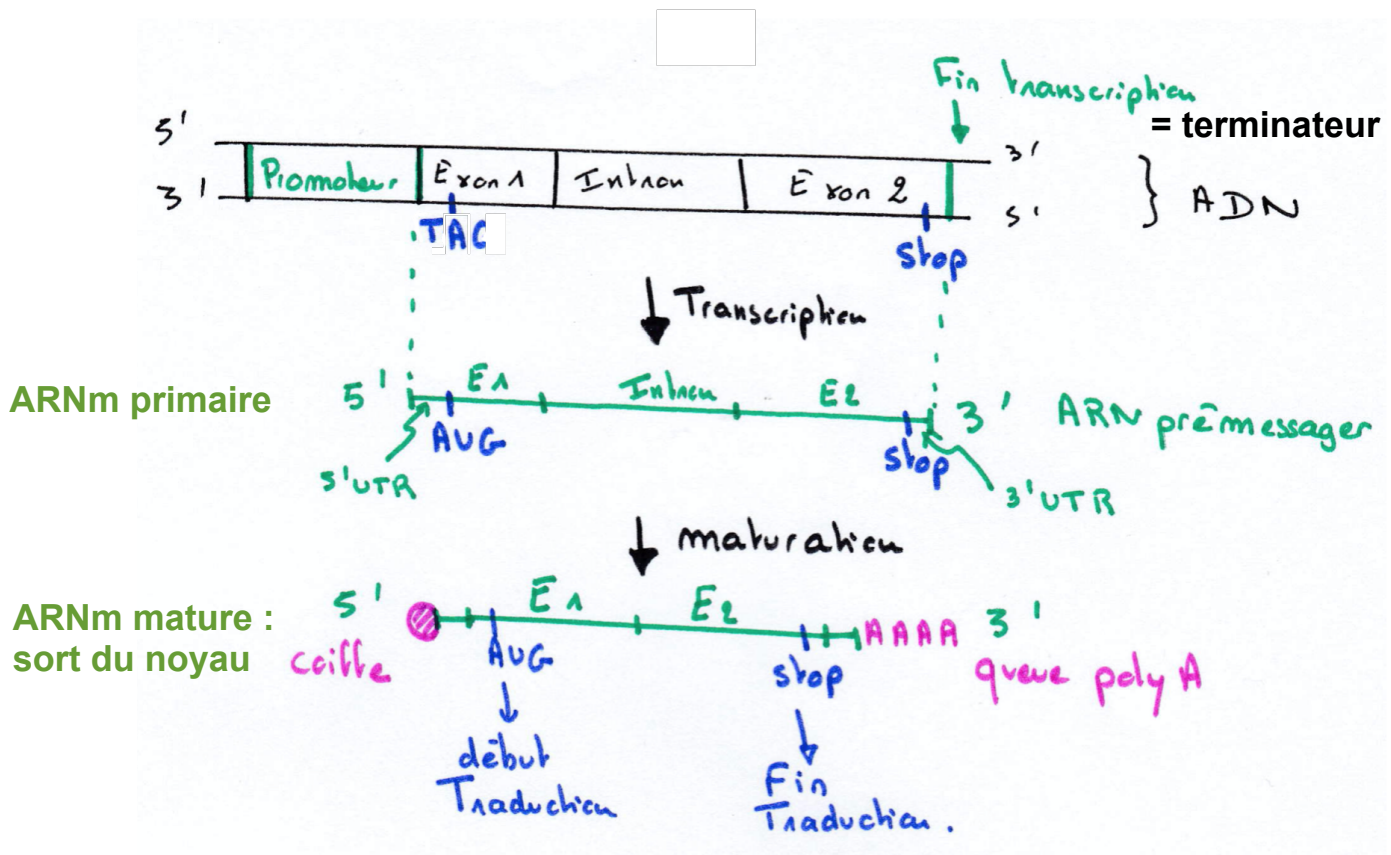 Fin transcription
= terminateur
5' 3'
Promoteur Exon 1 Intron Exon 2
3' 5'
} ADN
TAC stop
Transcription
ARNm primaire 5' E1 Intron E2 3' ARN prémessager
AUG stop
5'UTR 3'UTR
maturation
ARNm mature : 5' E1 E2 AAAA 3'
sort du noyau coiffe AUG stop queue poly A
début Fin
Traduction Traduction.